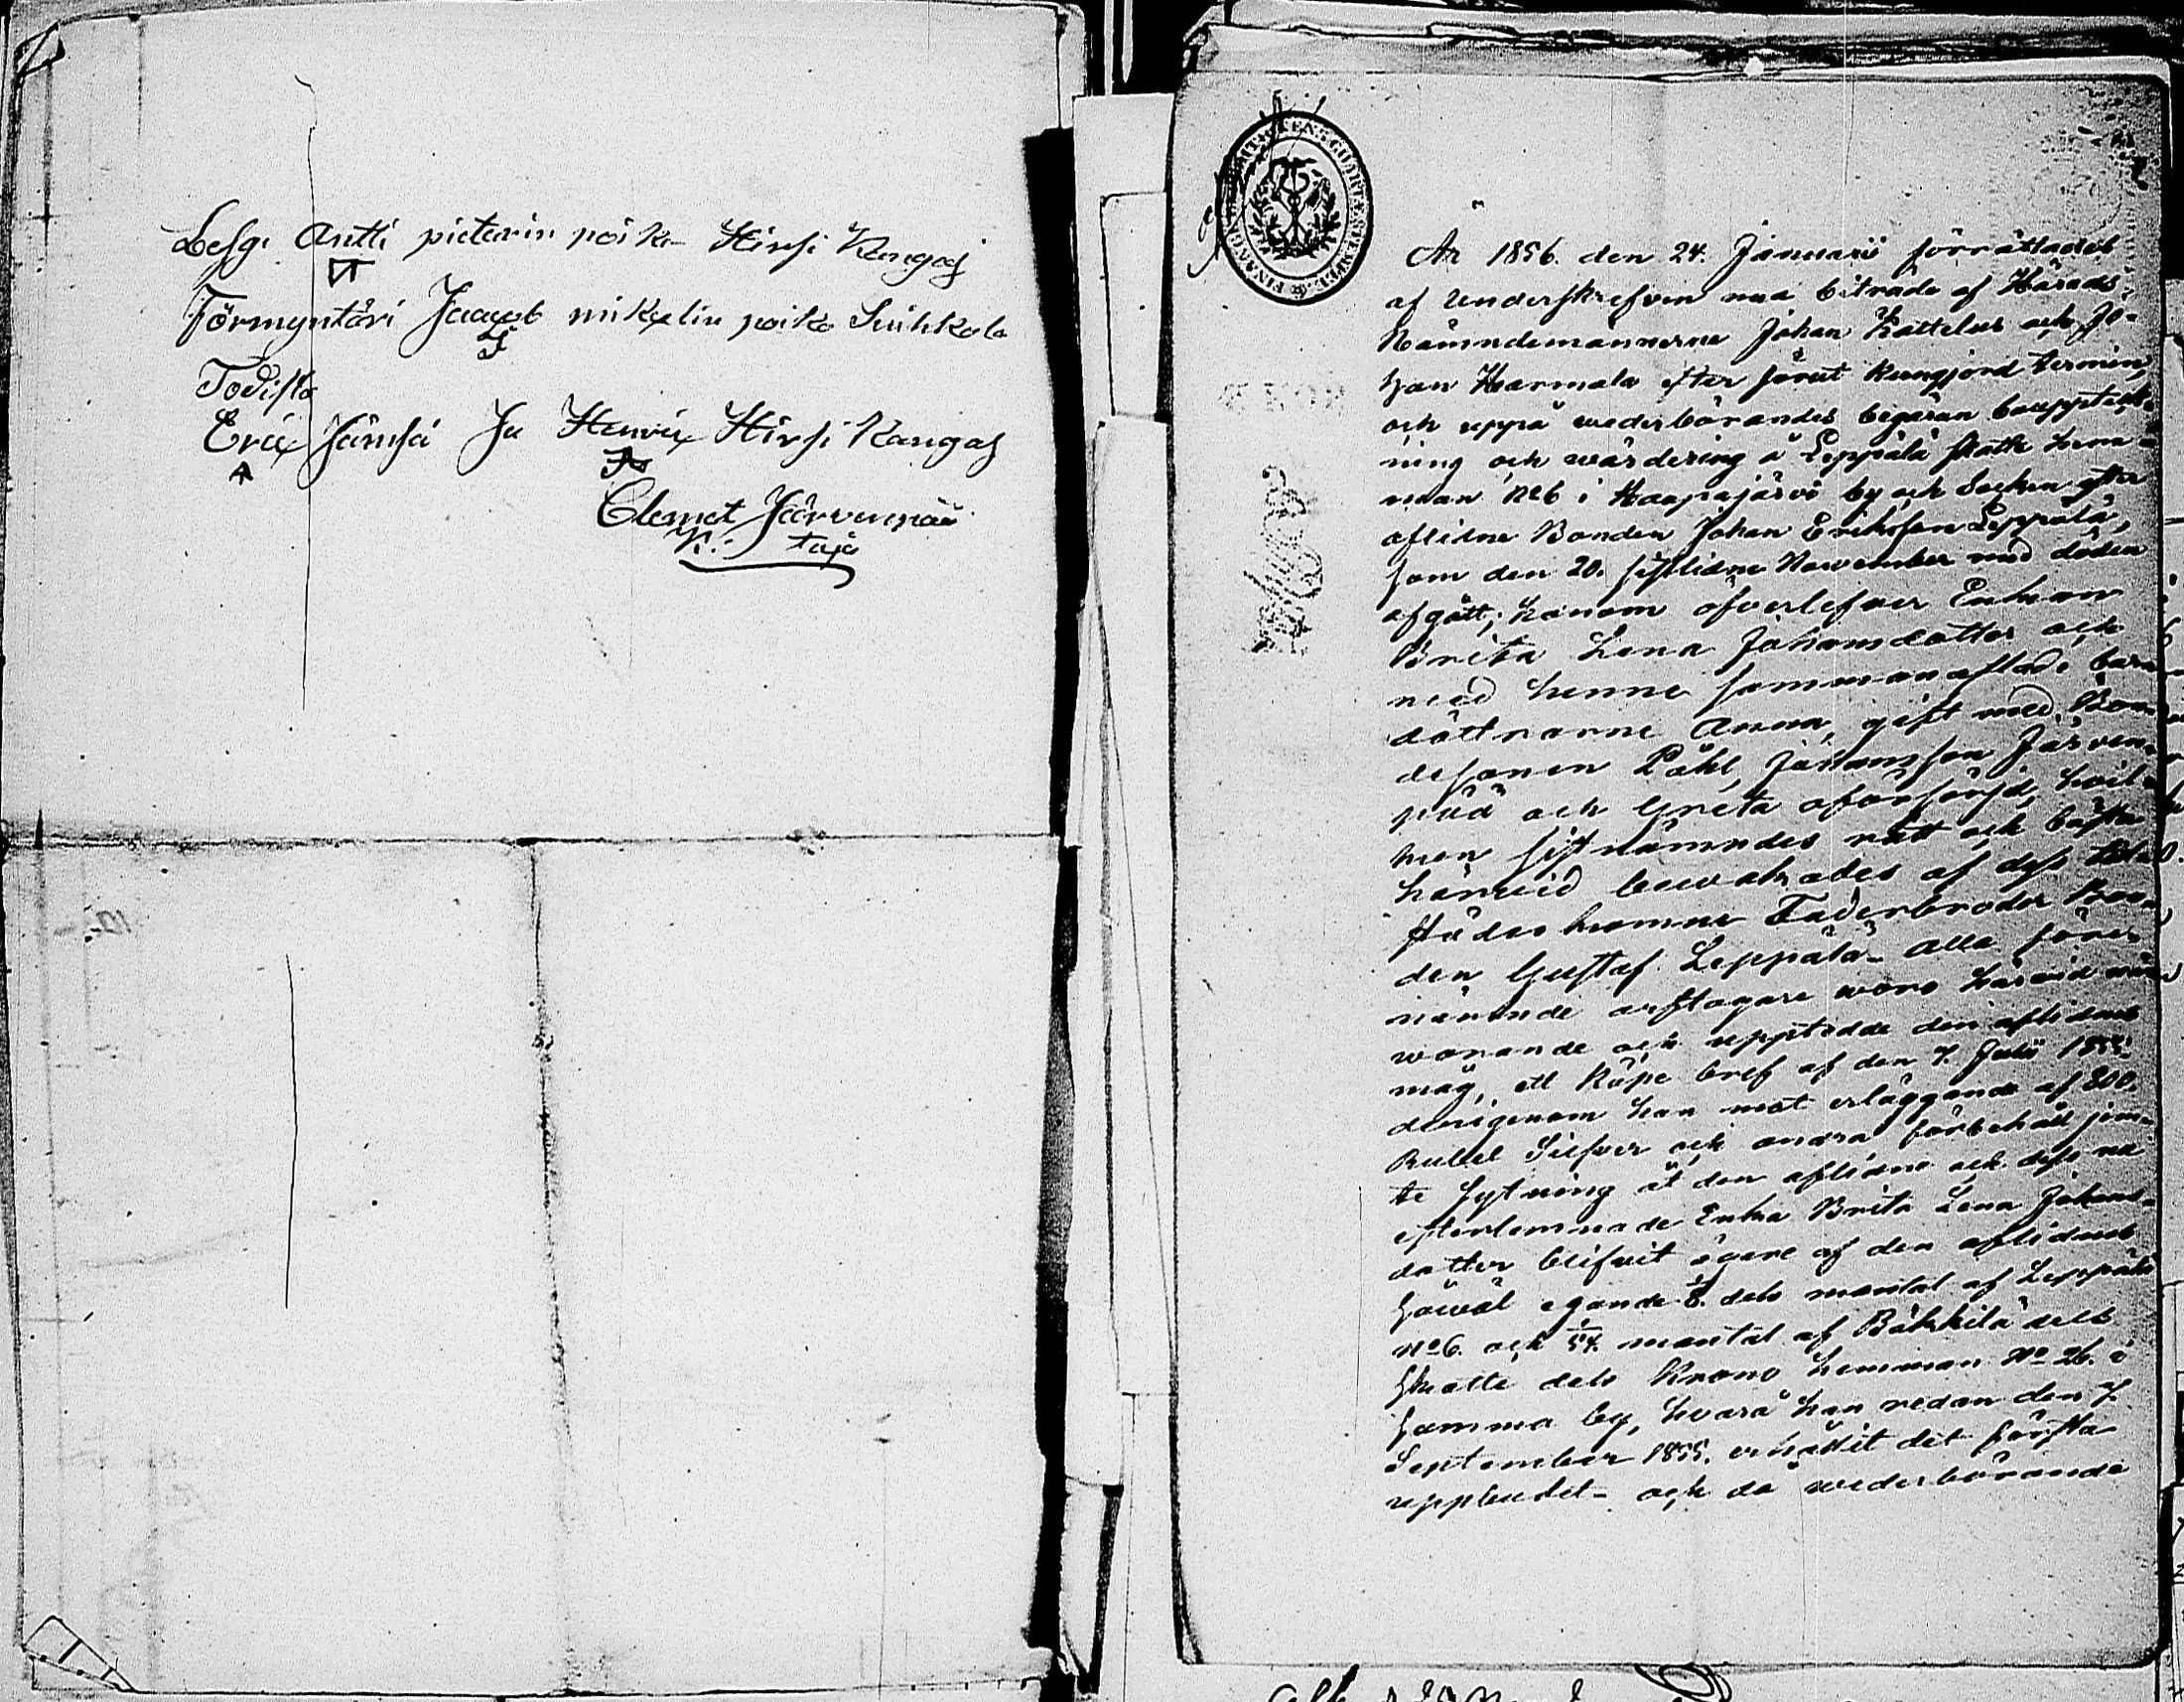 Lesg. Antti pieterin poika Hirsi Kangas
Förmyntäri Jaacob mikelin poika Suihkola
Todista
Eric Jämsä Ja Henrix Hirsi Kangas
Clemet Järvenpää
År 1856. den 24. Januarii förrättades
af Underskrefven med biträde af Härads-
Nämndemännerne Johan Kattelus och Jo-
han Harmala efter förut kungjord termin,
och uppå wederbörandes begäran bouppteck-
ning och wärdering å Leppälä skatte hem-
man No 6 i Haapajärvi by och Socken efter
aflidne Bonden Johan Eriksson Leppälä,
som den 20. sistlidne November med döden
afgått; honom öfverlefver Enkan
Brita Lena Johansdotter och
med henne sammanaflade barn
döttrarne Anna, gift med Bon-
desonen Påhl Johansson Järven-
pää och Greta oförsörjd, hvil-
hvilken sistnämndes rätt och bästa
härwid bewakades af dess till-
städeskomne Faderbroder Bon-
den Gustaf Leppälä. Alla före-
nämnde arftagare woro härwid när-
warande och uppteddde den aflidnes
måg, ett Köpe bref af den 7. Julii 1855.
derigenom han mot erläggande af 800.
Rubel Silfver och andra förbehåll jem-
te sytning åt den aflidne och dess nu
efterlemnade Enka Brita Lena Johans-
dotter blifvit ägare af den aflidnes
såwäl egande 1/8. dels mantal af Leppälä
No 6. och 1/54. mantal af Bähkilä dels
skatte dels Krono hemman No 26. i
samma by, hvarå han redan den 7.
September 1855. erhållit det första
uppbudet - och då wederbörande